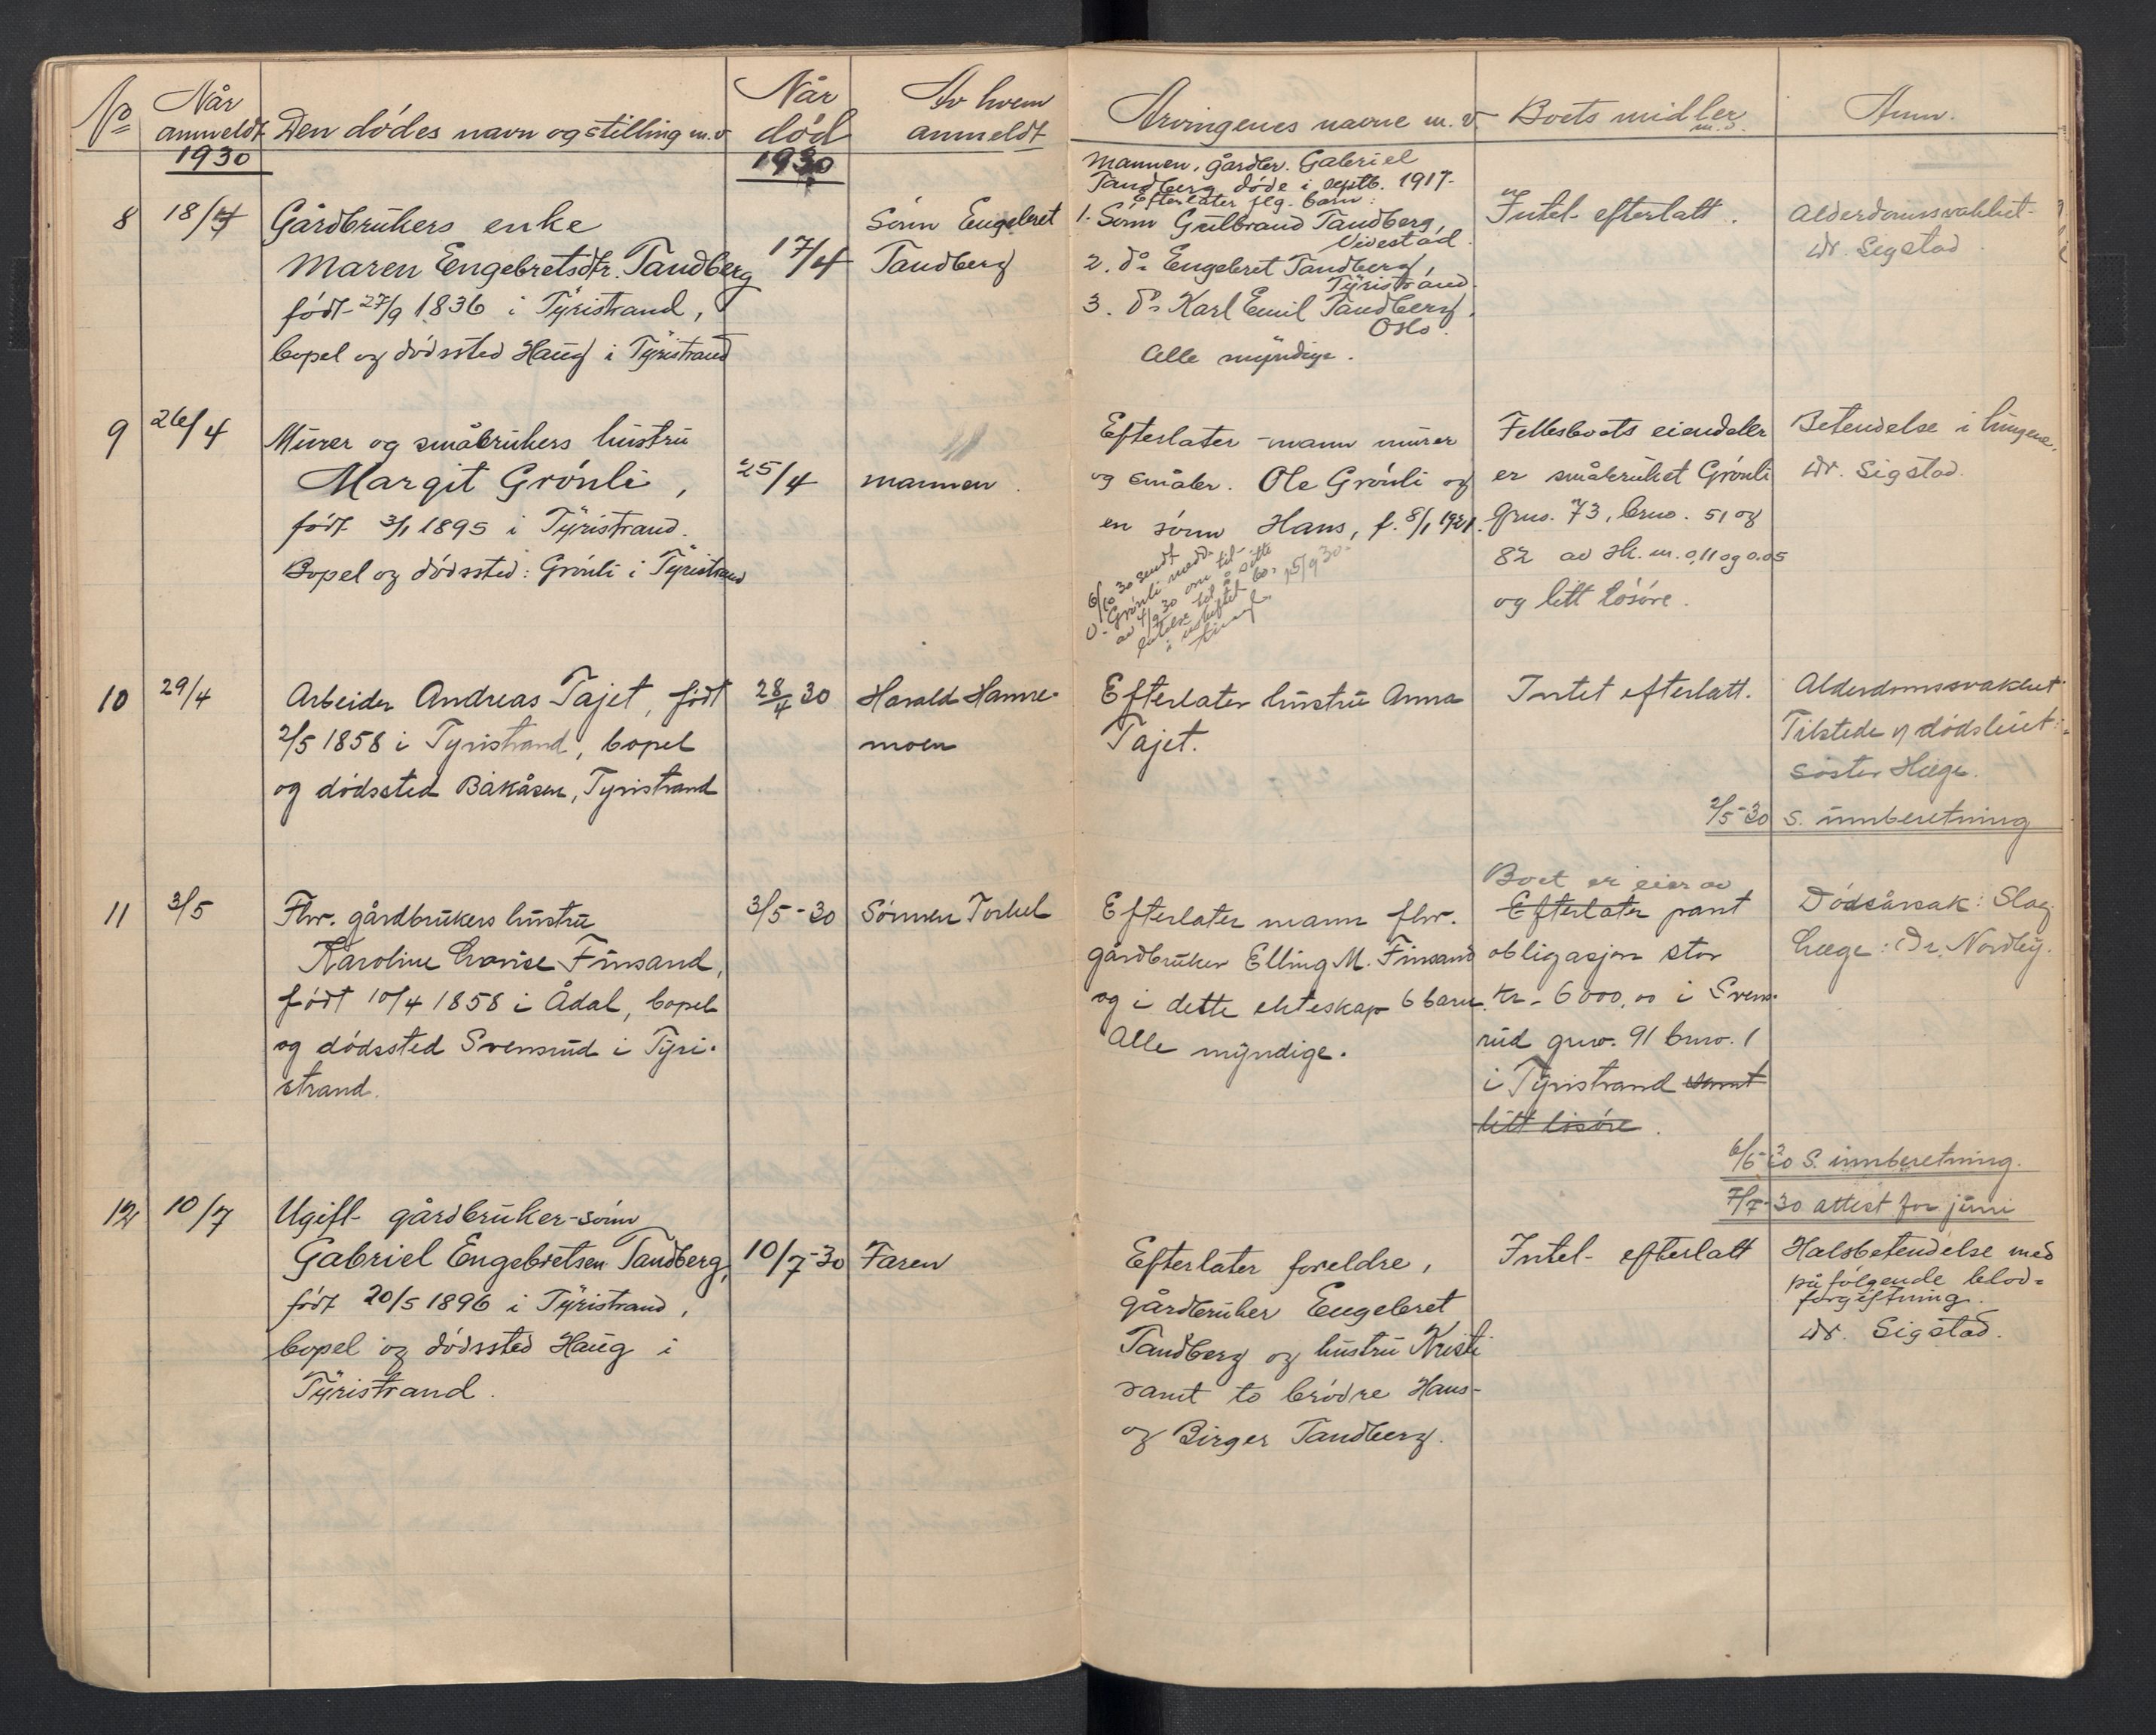 No
Når anmeldt
1930
Den dødes navn og stilling m.v
Når død
1930
Av hvem anmeldt
Arvingenes navne m.v.
Boets midler m.v.
Anm.
8
18/4
Gårdbrukers enke
Maren Engebretsdtr. Tandberg
født 27/9 1836 i Tyristrand,
bopel og dødssted Haug i Tyristrand
17/4
Sønn Engebret
Tandberg
Mannen, gårdbr. Gabriel
Tandberg døde i septb. 1917.
Efterlater flg. barn:
1. Sønn Gulbrand Tandberg,
2. do Engebret Tandberg,
Tyristrand.
3. do Karl Emil Tandberg,
Oslo.
Alle myndige.
Intet efterlatt.
Alderdomssvakhet.
Dr. Sigstad
9
26/4
Murer og småbrukers hustru
Margit Grønli,
født 3/1 1895 i Tyristrand.
Bopel og dødssted: Grønli i Tyristrand
25/4
mannen.
Efterlater mann murer
og småbr. Ole Grønli og
en sønn Hans, f. 8/1 1921.
6/10 30 sendt
O. Grønli medd.
av 4/9 30 om til-
latelse til å sitte
i uskiftet bo.
15/9 30.
Fellesboets eiendeler
er småbruket Grønli
gnr. 73, brno. 51 og
82 av sk. m. 0,11 og 0.05
og litt løsøre.
Betendelse i lungene.
Dr. Sigstad.
10
29/4
Arbeider Andreas Tajet, født
2/5 1858 i Tyristrand, bopel
og dødssted Bakåsen, Tyristrand
28/4 30
Harald Hanne-
moen
Efterlater hustru Anna
Tajet.
Intet efterlatt.
Alderdomssvakhet
Tilstede v/ dødsleiet:
søster Hæge.
2/5-30 S. innberetning
11
3/5
Fhv. gårdbrukers hustru
Karoline Lovise Finsand,
født 10/4 1858 i Ådal, bopel
og dødssted Svensrud i Tyri-
strand.
3/5-30
Sønnen Torkel
Efterlater mann fhv.
gårdbruker Elling M. Finsand
og i dette ekteskap 6 barn.
Alle myndige.
Boet er eier av
Efterlater pant
obligasjon stor
kr. 6000,00 i Svens-
rud gnr. 91 bnr. 1
i Tyristrand samt
litt løsøre.
Dødsårsak: Slag.
Læge: Dr. Nordby.
6/5-30 S. innberetning.
7/7-30 attest for juni
12
10/7
Ugift gårdbruker-sønn
Gabriel Engebretsen Tandberg,
født 20/5 1896 i Tyristrand,
bopel og dødssted Haug i
Tyristrand.
10/7-30
Faren
Efterlater foreldre,
gårdbruker Engebret
Tandberg og hustru Kristi
samt to brødre Hans
og Birger Tandberg.
Intet efterlatt
Halsbetendelse med
påfølgende blod-
forgiftning.
Dr. Sigstad.